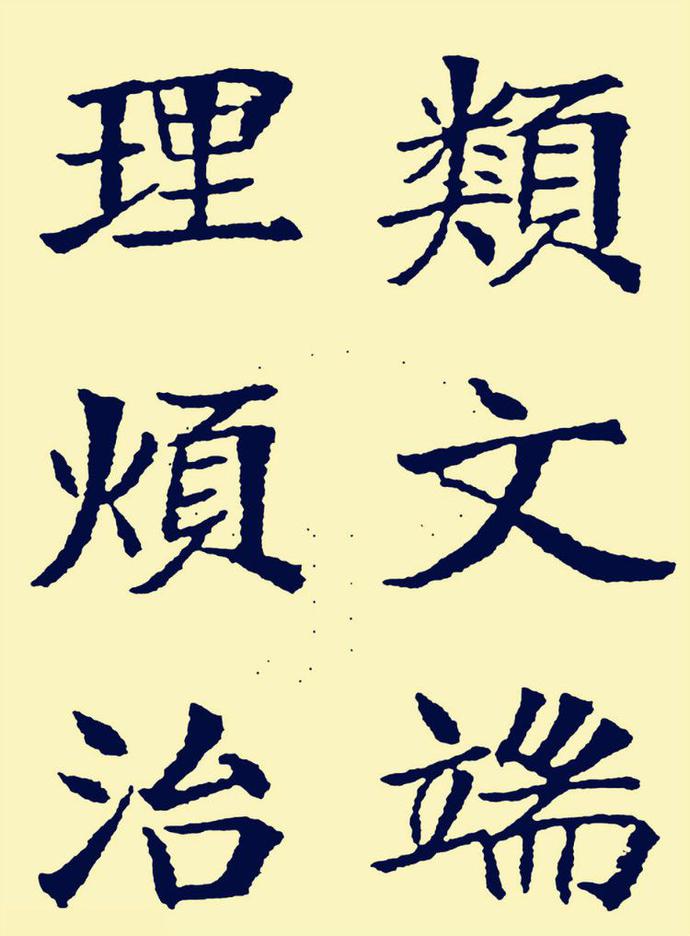 類文端
理煩治